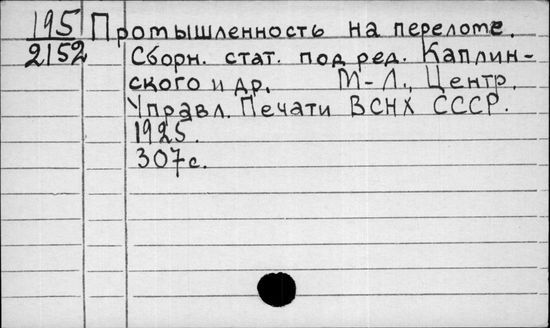 195 Промышленность на перелоте.
2152 Сборн. стат. под ред. Каплин-
ского и др. М-Л., Центр.
Управл. Печати ВСНХ СССР.
1925.
307с.